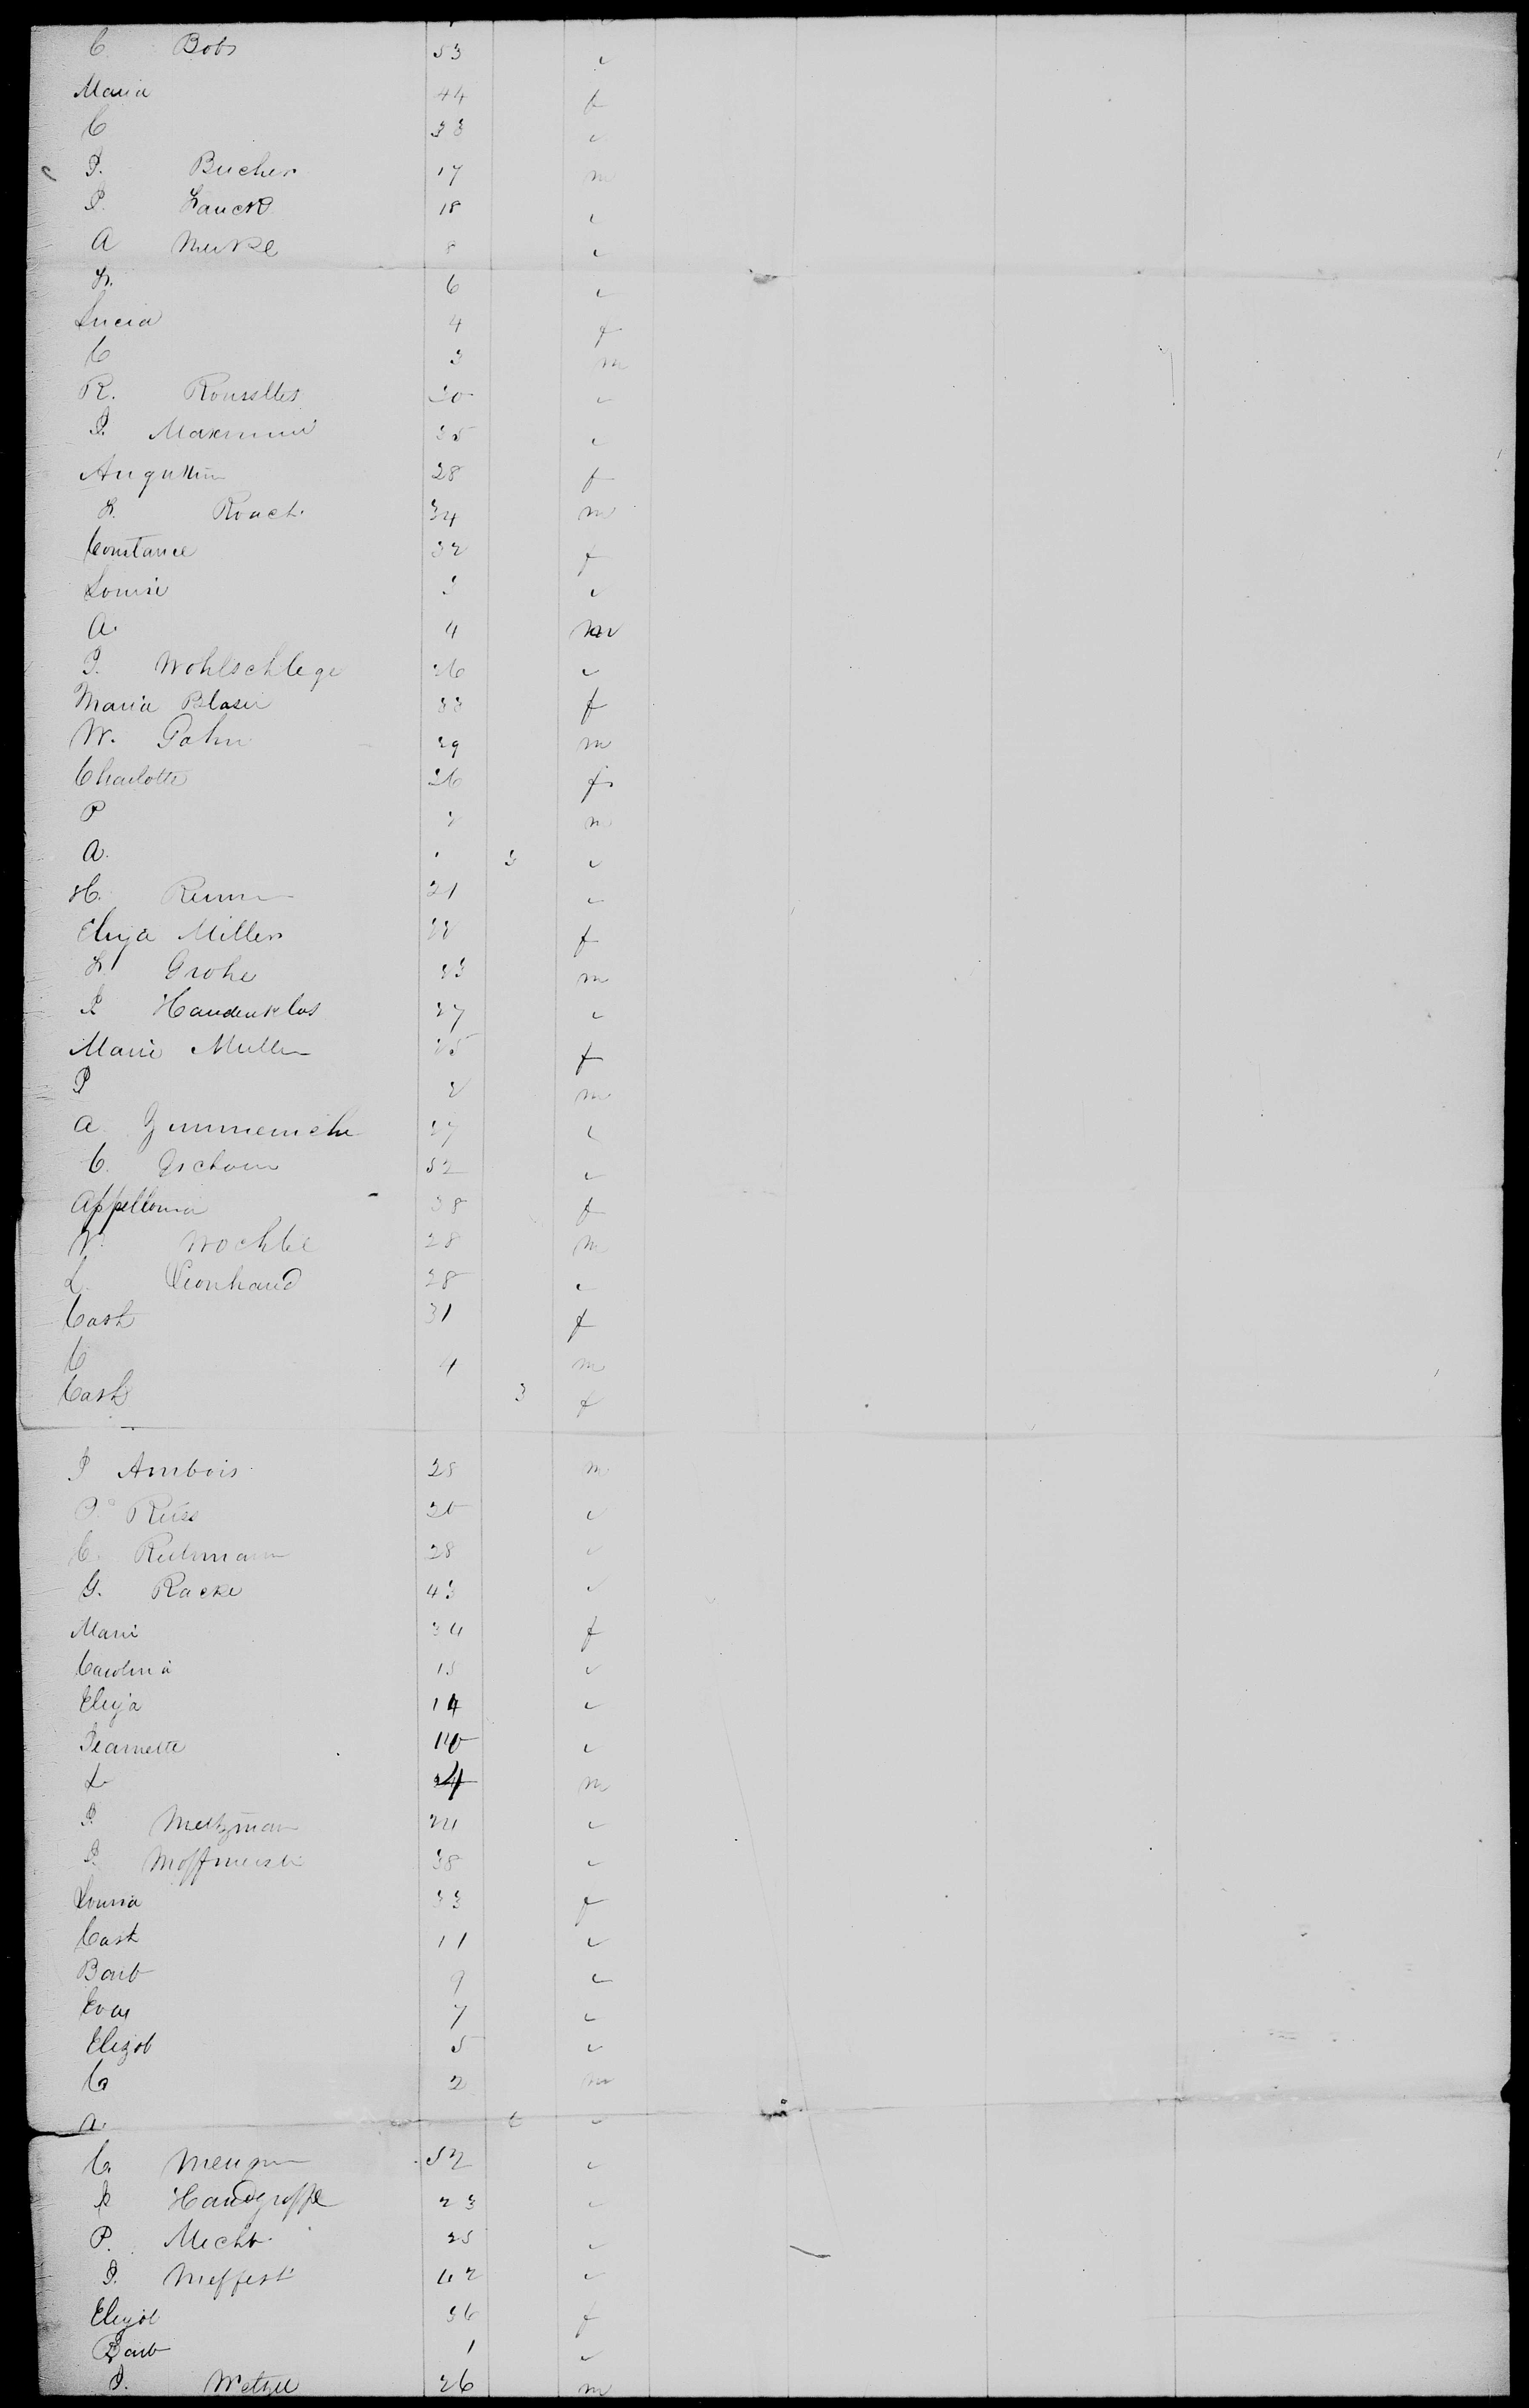 C Bobs 53 "
Maria 44 f
C 38 "
J. Bucher 17 m
P. Lauck 18 "
A Merkel 8 "
L. 6 "
Lucia 4 f
C 3 m
R. Rousselles 30 "
J. Maximin 35 "
Augustin 28 f
L. Roach 34 m
Constance 32 f
Louise 3 "
A. 4 m
J. Wohlschlege 26 "
Maria Blaser 33 f
W. Gahn 29 m
Charlotte 26 f
P 2 m
A. 3 "
H. 21 "
Eliza Miller 22 f
L Grohe 33 m
J 27 "
Marie Muller 25 f
J 2 m
A. 27 "
C. 52 "
Appellonia 38 f
V. Wochtel 28 m
L. Leonhard 28 "
Cath 31 f
C 4 m
Cath 3 f
J Ambois 28 m
J. Reiss 26 "
C. Ruhmann 28 "
G. Racke 43 "
Marie 34 f
Carolina 15 "
Eliza 14 "
Jeannette 10 "
L 4 m
J. Metzman 24 "
J. 38 "
Louisa 33 f
Cath 11 "
Barb 9 "
Eva 7 "
Elizab 5 "
C 2 m
A. 6 "
C. 52 "
23 "
P. Mecht 25 "
J. Meffert 42 "
Elizab 36 f
Barb 1 "
J. Wetzel 26 m